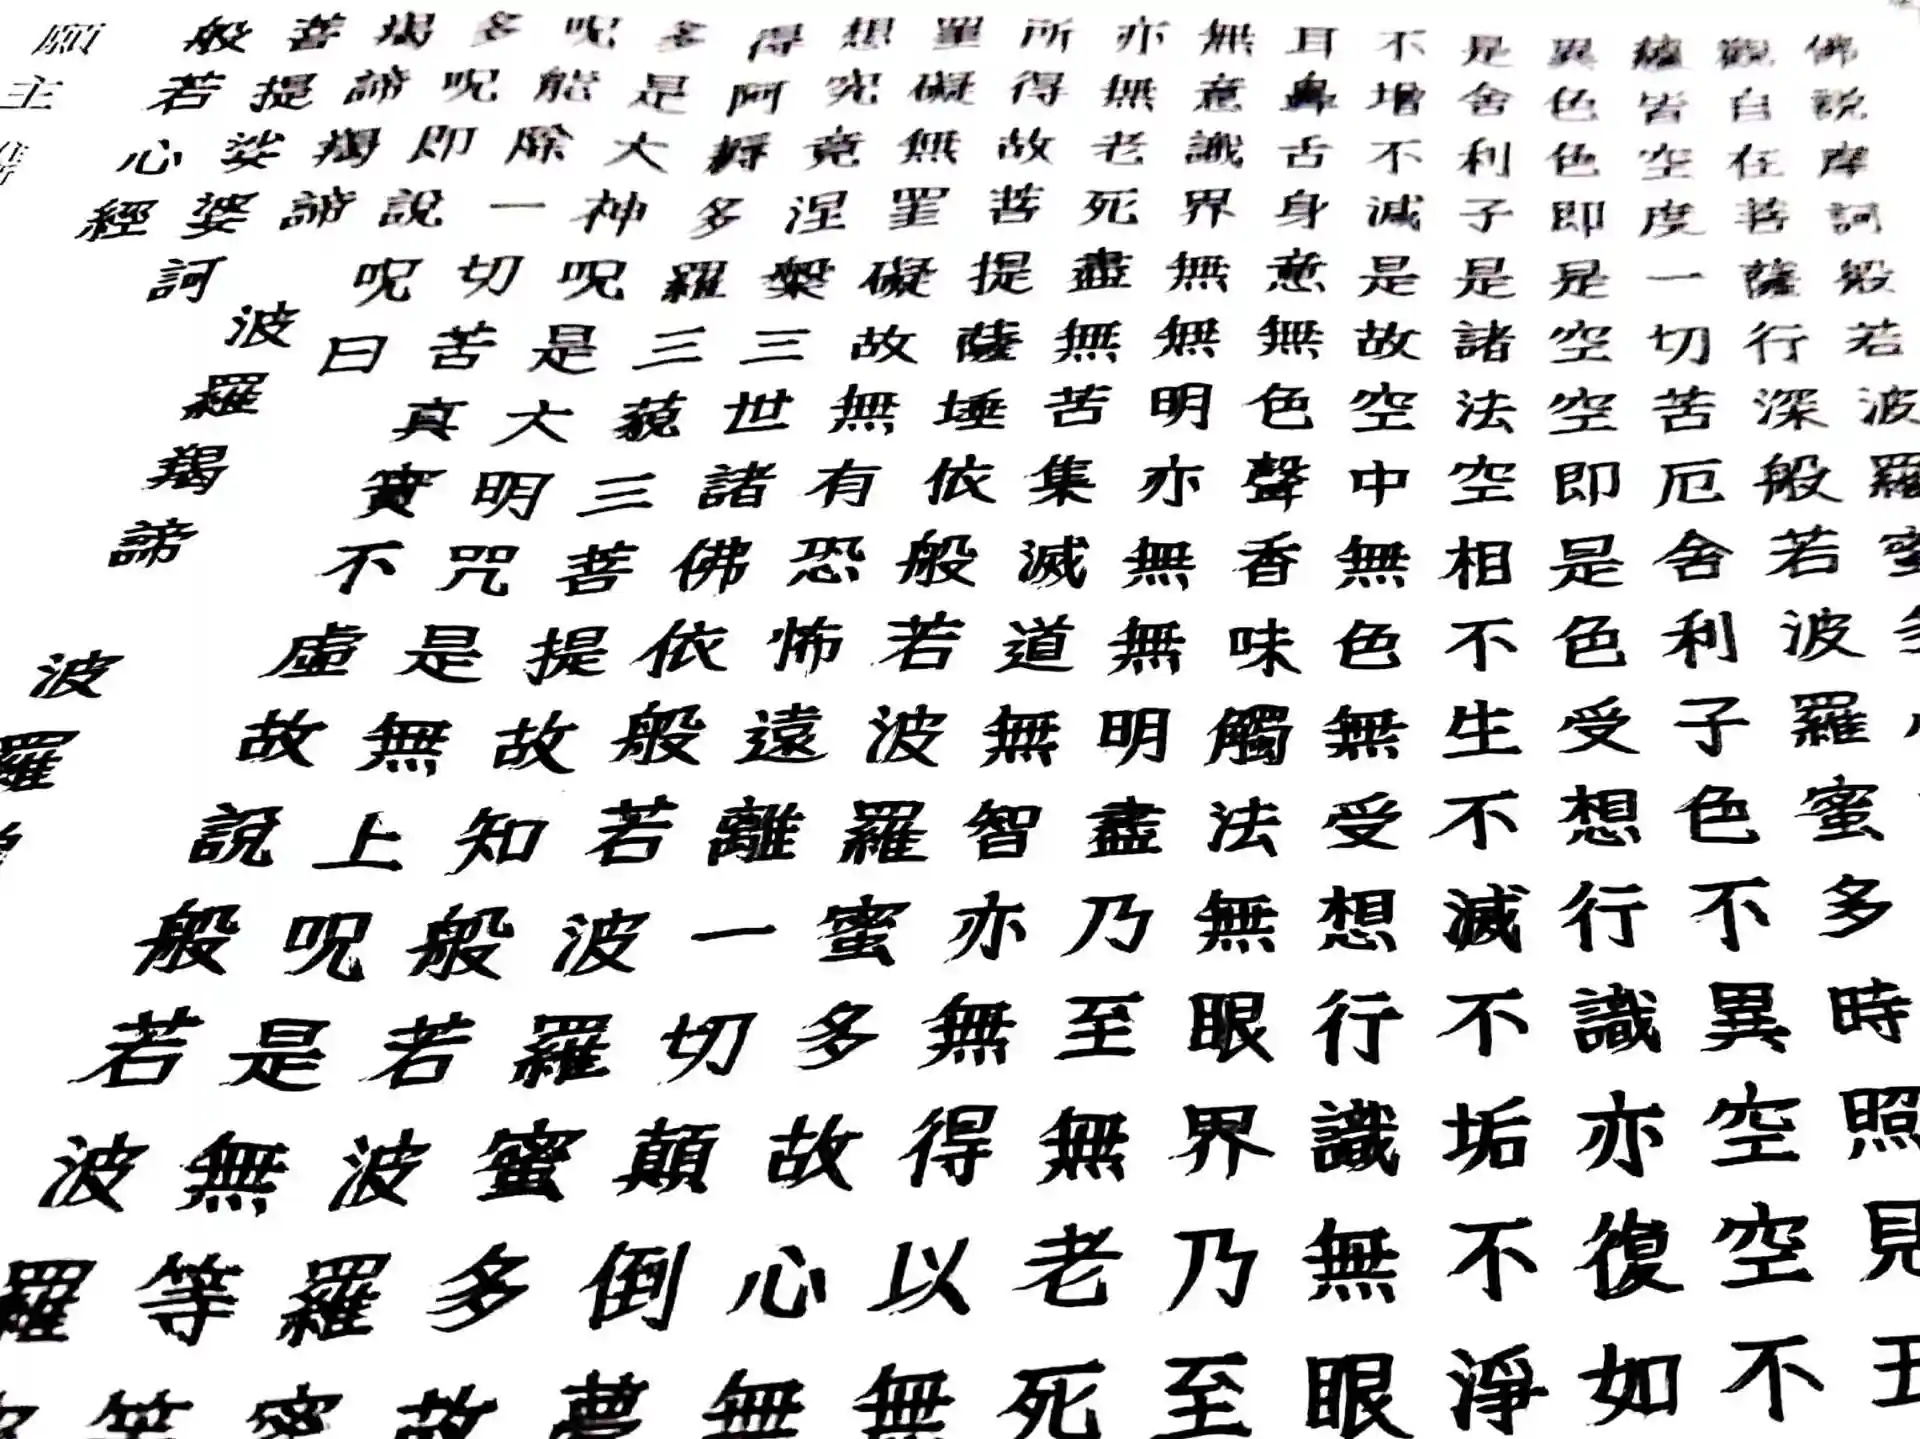 佛說摩訶般若波羅蜜多心
觀自在菩薩行深般若波羅蜜多時照見五
蘊皆空度一切苦厄舍利子色不異空空不
異色色即是空空即是色受想行識亦復如
是舍利子是諸法空相不生不滅不垢不淨
不增不減是故空中無色無受想行識無眼
耳鼻舌身意無色聲香味觸法無眼界乃至
無意識界無無明亦無無明盡乃至無老死
亦無老死盡無苦集滅道無智亦無得以無
所得故菩提薩埵依般若波羅蜜多故心無
罣礙無罣礙故無有恐怖遠離一切顛倒夢
想究竟涅槃三世諸佛依般若波羅蜜多故
得阿耨多羅三藐三菩提故知般若波羅蜜
多是大神呪是大明咒是無上呪是無等等
呪能除一切苦真實不虛故說般若波羅蜜
多呪即說呪曰
羯諦羯諦 波羅羯諦 波羅
菩提娑婆訶
般若心經
願主